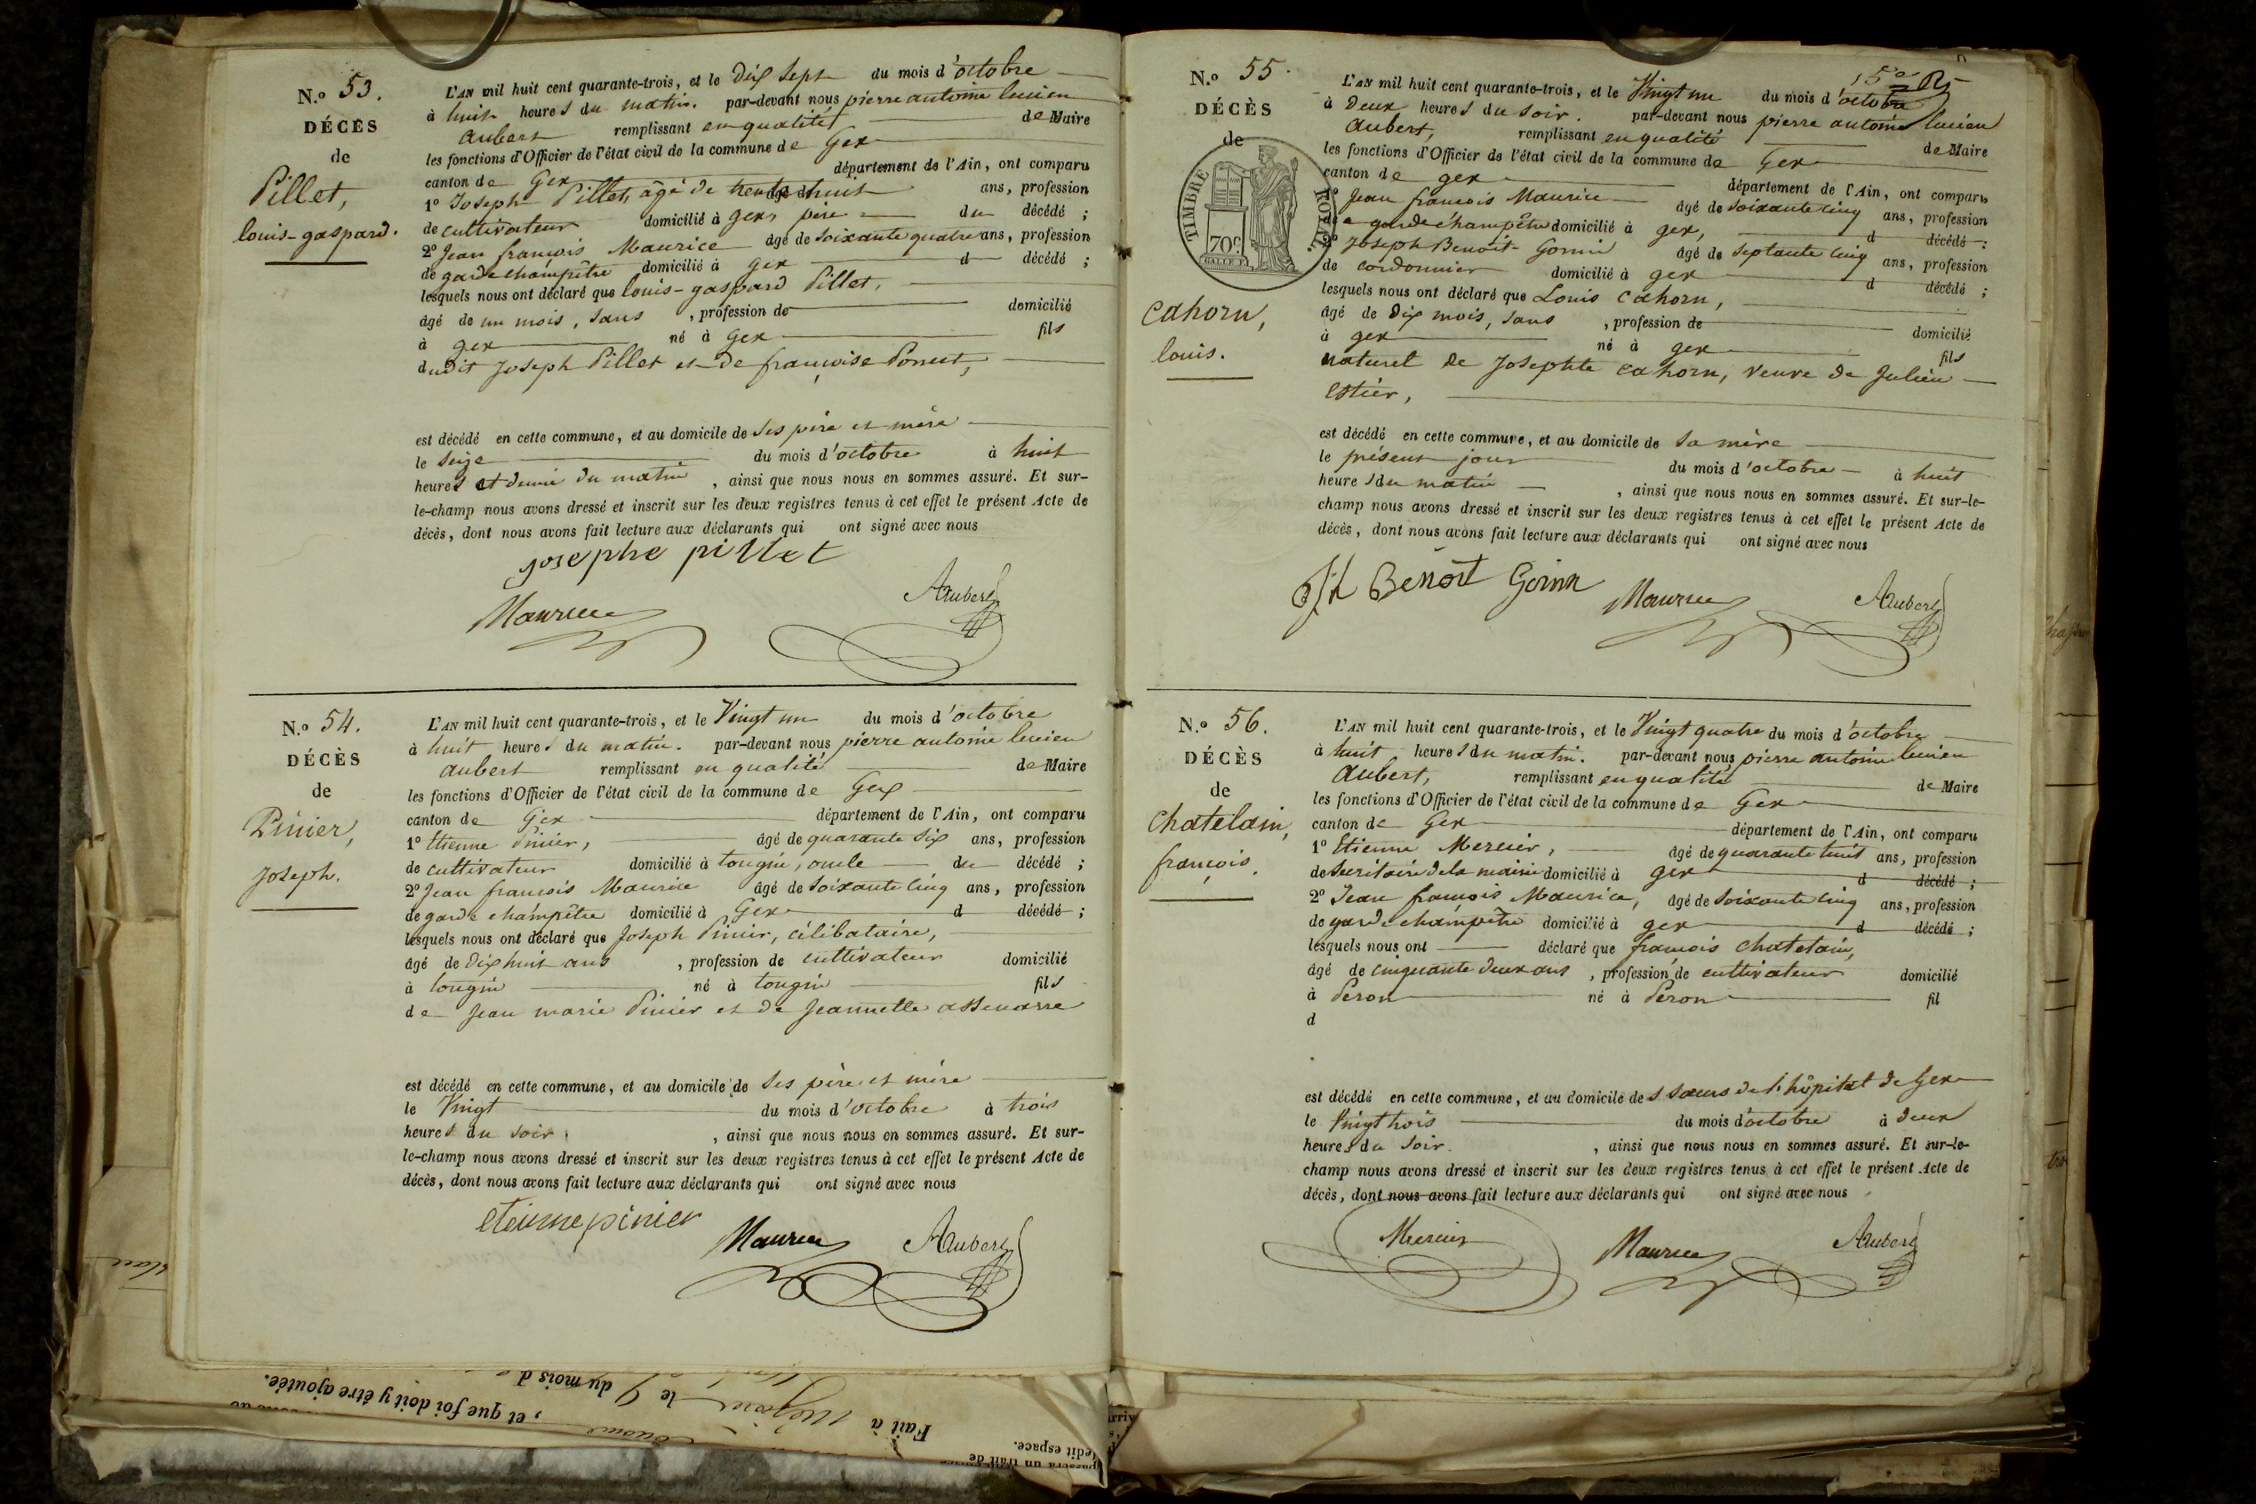 N.º 53.
DÉCÈS
de
Pillet,
louis-gaspard.
L'AN mil huit cent quarante-trois, et le Dix sept du mois d'octobre
à huit heures du matin. par-devant nous pierre antoine lucien
aubert remplissant en qualité de Maire
les fonctions d'Officier de l'état civil de la commune de Gex
canton de Gex département de l'Ain, ont comparu
1º Joseph Pillet, âgé de trente huit ans, profession
de cultivateur domicilié à gex, père du décédé ;
2º Jean françois Maurice âgé de soixante quatre ans, profession
de garde champêtre domicilié à gex d décédé ;
lesquels nous ont déclaré que louis-gaspard Pillet,
âgé de un mois, sans , profession de domicilié
à gex né à Gex fils
dudit Joseph Pillet et de françoise
est décédé en cette commune, et au domicile de ses père et mère
le seize du mois d'octobre à huit
heures et demie du matin , ainsi que nous nous en sommes assuré. Et sur-
le-champ nous avons dressé et inscrit sur les deux registres tenus à cet effet le présent Acte de
décès, dont nous avons fait lecture aux déclarants qui ont signé avec nous
josephe pillet
Maurice Aubert
N.º 54.
DÉCÈS
de
Pinier,
Joseph.
L'AN mil huit cent quarante-trois, et le Vingt un du mois d'octobre
à huit heures du matin. par-devant nous pierre antoine lucien
aubert remplissant en qualité de Maire
les fonctions d'Officier de l'état civil de la commune de Gex
canton de Gex département de l'Ain, ont comparu
1º Etienne Pinier, âgé de quarante six ans, profession
de cultivateur domicilié à tougin, oncle du décédé ;
2º Jean françois Maurice âgé de soixante cinq ans, profession
de garde champêtre domicilié à Gex d décédé ;
lesquels nous ont déclaré que Joseph Pinier, célibataire,
âgé de dix huit ans , profession de cultivateur domicilié
à tougin né à tougin fils
de Jean marie Pinier et de Jeannette
est décédé en cette commune, et au domicile de ses père et mère
le Vingt du mois d'octobre à trois
heures du soir , ainsi que nous nous en sommes assuré. Et sur-
le-champ nous avons dressé et inscrit sur les deux registres tenus à cet effet le présent Acte de
décès, dont nous avons fait lecture aux déclarants qui ont signé avec nous
etienne pinier Maurice Aubert
N.º 55.
DÉCÈS
de
TIMBRE ROYAL.
70c
Cahorn,
louis.
L'AN mil huit cent quarante-trois, et le Vingt un du mois d'octobre
à Deux heures du soir. par-devant nous pierre antoine lucien
aubert, remplissant en qualité de Maire
les fonctions d'Officier de l'état civil de la commune de Gex
canton de gex département de l'Ain, ont comparu
Jean françois Maurice âgé de soixante cinq ans, profession
de garde champêtre domicilié à gex, d décédé ;
Joseph Benoit Gornn âgé de septante cinq ans, profession
de cordonnier domicilié à gex d décédé ;
lesquels nous ont déclaré que Louis Cahorn,
âgé de dix mois, sans , profession de domicilié
à gex né à gex fils
naturel de Josephte Cahorn, veuve de Julien
Estier,
est décédé en cette commune, et au domicile de sa mère
le présent jour du mois d'octobre à huit
heures du matin , ainsi que nous nous en sommes assuré. Et sur-le-
champ nous avons dressé et inscrit sur les deux registres tenus à cet effet le présent Acte de
décès, dont nous avons fait lecture aux déclarants qui ont signé avec nous
Benoit Gornn Maurice Aubert
N.º 56.
DÉCÈS
de
Chatelain,
françois.
L'AN mil huit cent quarante-trois, et le Vingt quatre du mois d'octobre
à huit heures du matin. par-devant nous pierre antoine lucien
aubert, remplissant en qualité de Maire
les fonctions d'Officier de l'état civil de la commune de Gex
canton de Gex département de l'Ain, ont comparu
1º Etienne Mercier, âgé de quarante huit ans, profession
de secrétaire de la mairie domicilié à gex d décédé ;
2º Jean françois Maurice, âgé de soixante cinq ans, profession
de garde champêtre domicilié à gex d décédé ;
lesquels nous ont déclaré que françois Chatelain,
âgé de cinquante deux ans , profession de cultivateur domicilié
à Peron né à Peron fil
d
est décédé en cette commune, et au domicile des sœurs de l'hôpital de Gex
le Vingt trois du mois d'octobre à deux
heures du soir. , ainsi que nous nous en sommes assuré. Et sur-le-
champ nous avons dressé et inscrit sur les deux registres tenus à cet effet le présent Acte de
décès, dont nous avons fait lecture aux déclarants qui ont signé avec nous
Mercier Maurice Aubert
, et que foi doit y être ajoutée.
Fait à le 9 du mois d
ledit espace.